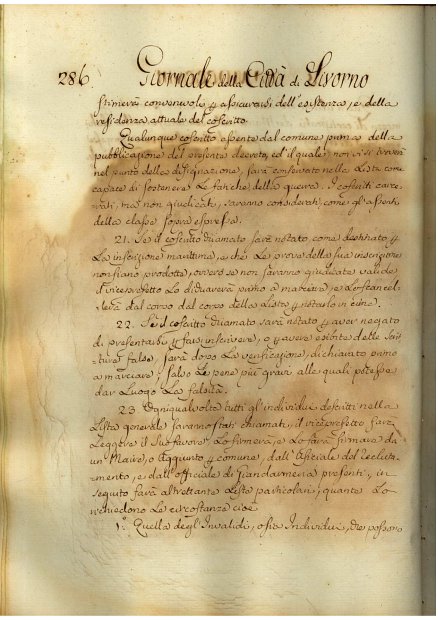 286. Giornale della Città di Livorno
stimerà convenevole p assicurarsi dell'esistenza, e della
residenza attuale del coscritto.
Qualunque coscritto assente dal comune prima della
pubblicazione del presente decreto, ed il quale non vi si troverà
nel punto della disignazione, sarà conservato nella Lista come
capace di sostenere Le fatiche della guerra. I coscritti carce-
rati, ma non giudicati, saranno considerati, come gl'assenti
della classe sopra espressa.
21. Se il coscritto chiamato sarà notato, come destinato p
La inscrizione marittima, e che Le prove della sua inscrizione
non siano prodotte, ovvero se non saranno giudicate valide,
il viceprefetto Lo dichiarerà primo a marciare, e Lo farà cel-
lerà dal corpo dal corpo della Lista p notarlo in cime.
22. Se il coscritto chiamato sarà notato p aver negato
di presentarsi p farsi inscrivere, o p avere esibite delle Scrit-
ture false, sarà dopo La verificazione, dichiarato primo
a marciare, salvo Le pene più gravi alle quali potesse
dar Luogo La falsità.
23. Ogniqualvolta tutti gl'individui descritti nella
Lista generale saranno stati chiamati, il viceprefetto farà
Leggere il Lo firmerà, e Lo farà firmare da
un Maire, o Aggiunto p comune, dall'Ufiziale del recluta-
mento, e dall'officiale di Giandarmeria presenti, in
seguito farà altrettante Liste particolari, quante Lo
richiedono Le circostanze cioè
1.° Quella degl'Invalidi, o sia Individui, che possono